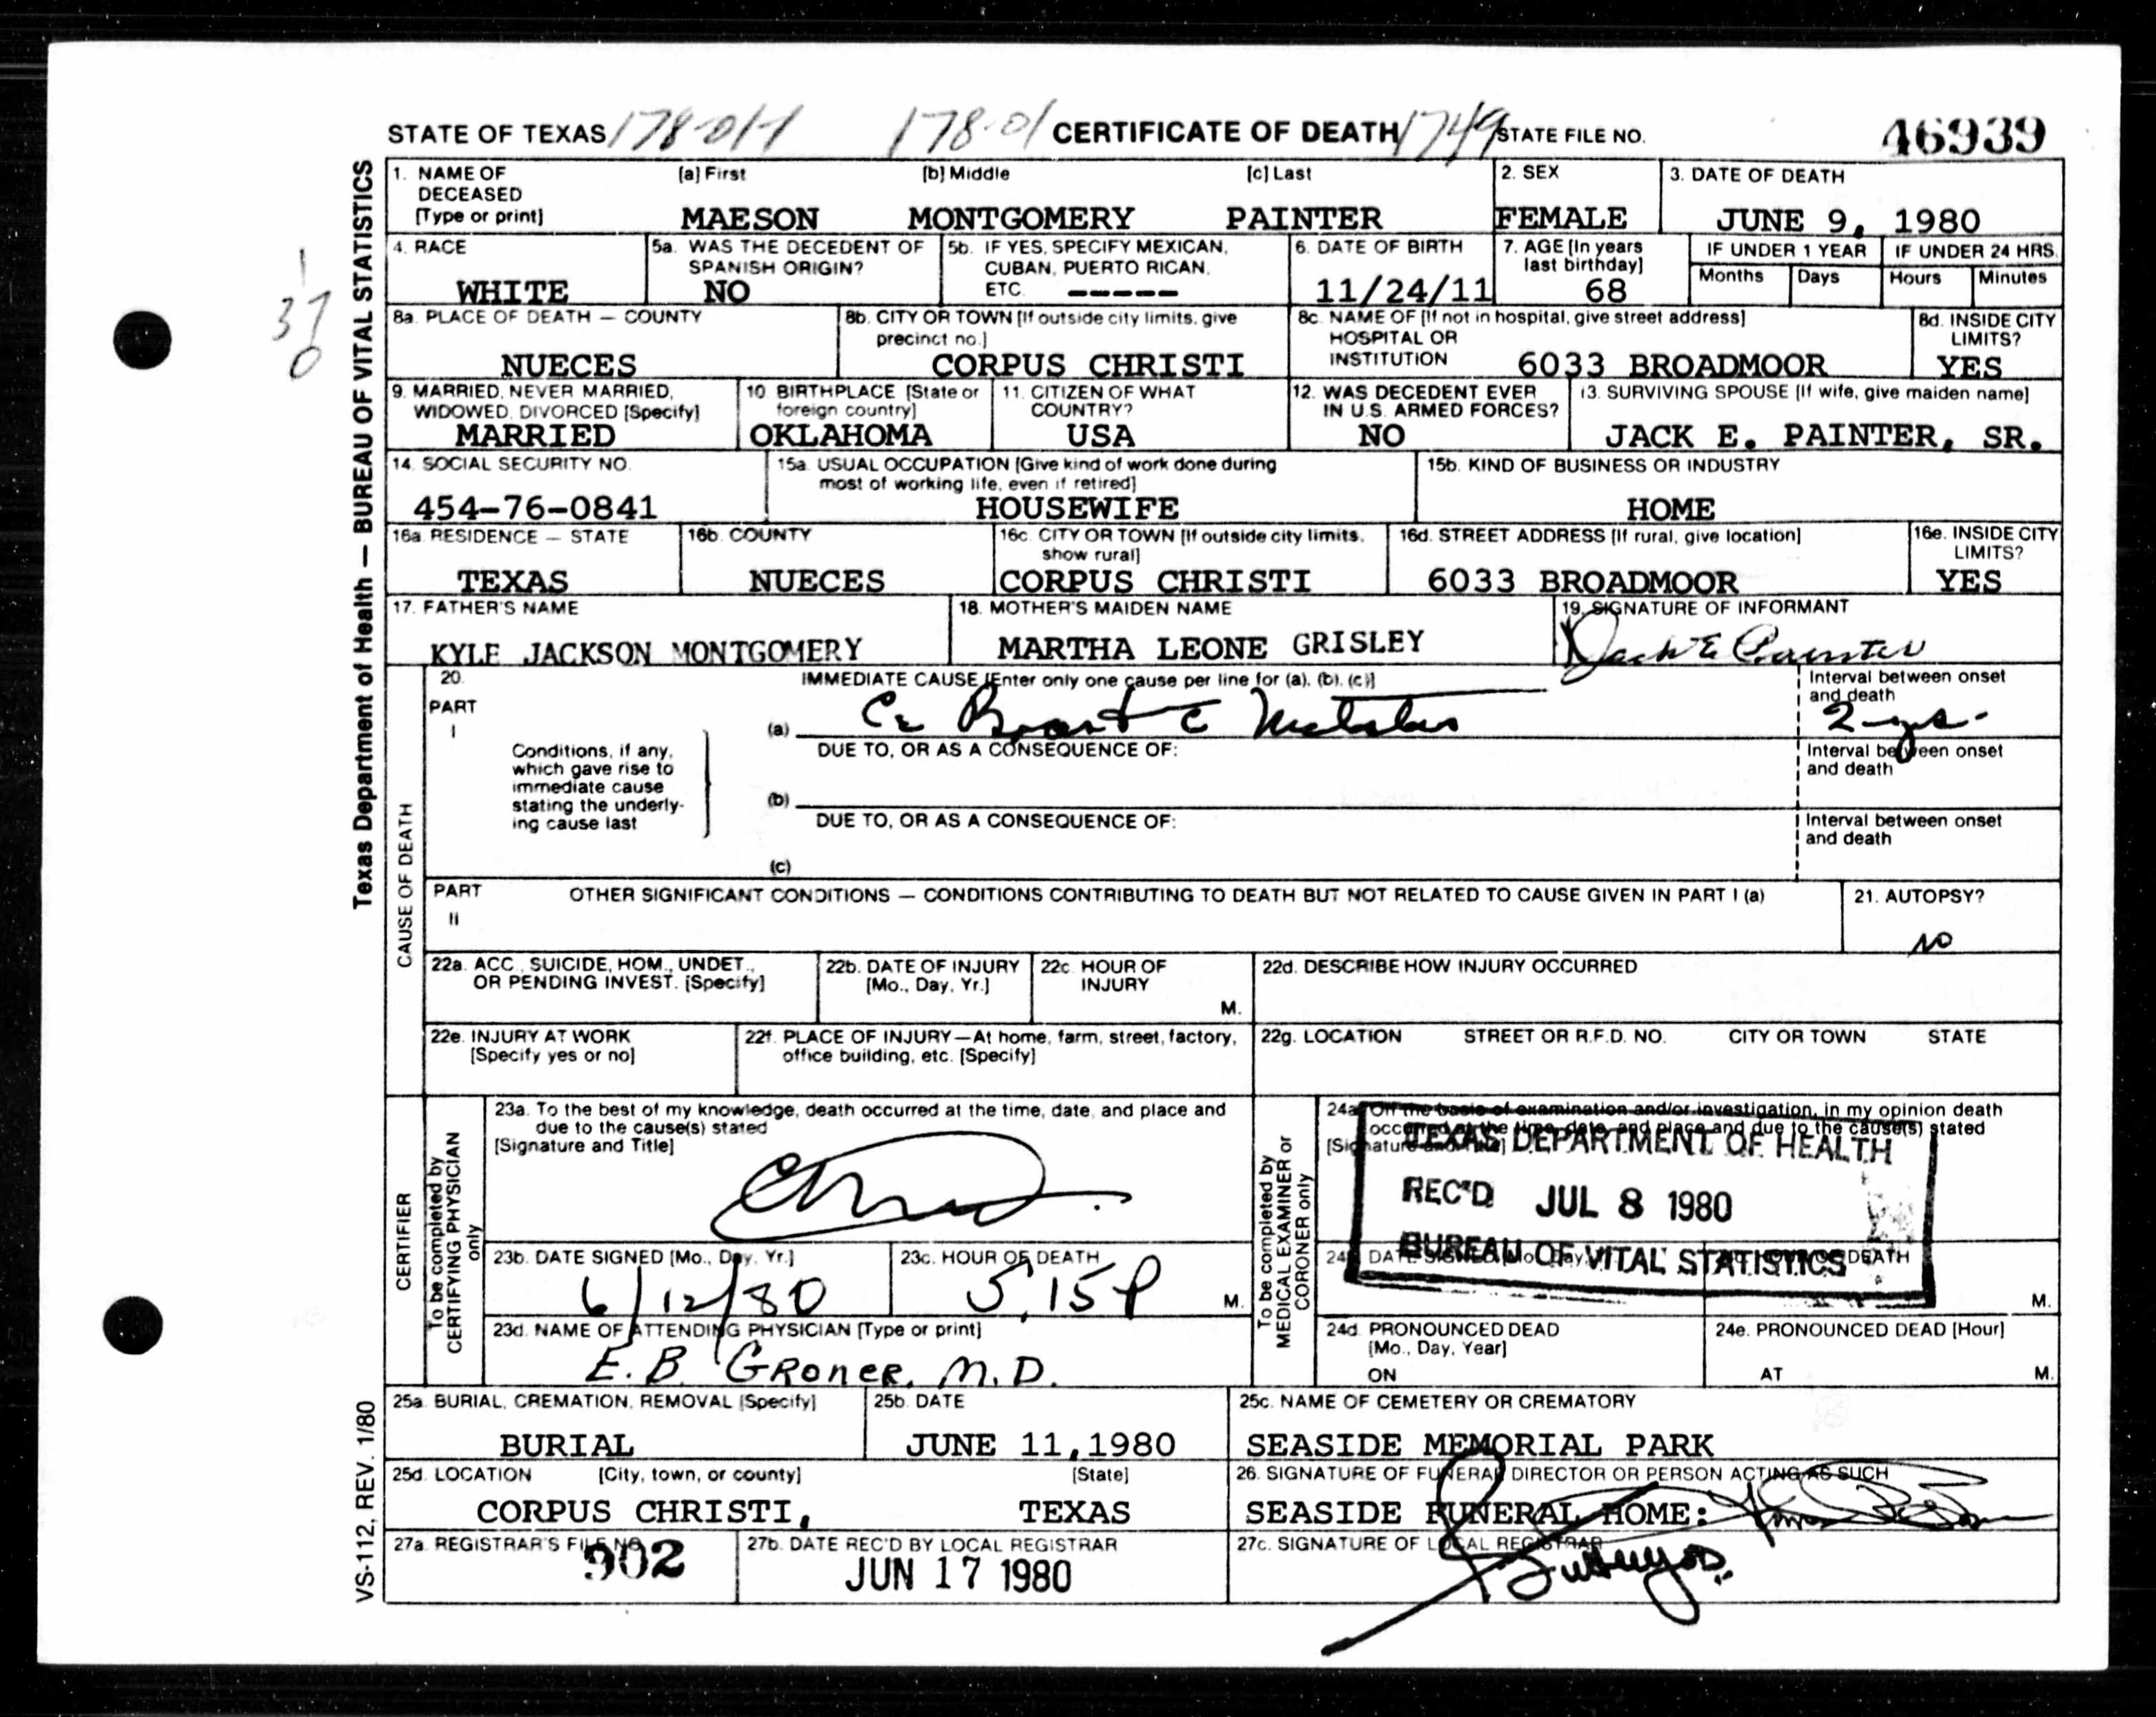 STATE OF TEXAS 178-0 178-0 CERTIFICATE OF DEATH 1749 STATE FILE NO. 46939
Texas Department of Health — BUREAU OF VITAL STATISTICS
1. NAME OF DECEASED [Type or print] [a] First [b] Middle [c] Last 2. SEX 3. DATE OF DEATH
MAESON MONTGOMERY PAINTER FEMALE JUNE 9, 1980
4. RACE 5a. WAS THE DECEDENT OF SPANISH ORIGIN? 5b. IF YES, SPECIFY MEXICAN, CUBAN, PUERTO RICAN, ETC. 6. DATE OF BIRTH 7. AGE [In years last birthday] IF UNDER 1 YEAR Months Days IF UNDER 24 HRS. Hours Minutes
WHITE NO ----- 11/24/11 68
8a. PLACE OF DEATH — COUNTY 8b. CITY OR TOWN [If outside city limits, give precinct no.] 8c. NAME OF [If not in hospital, give street address] HOSPITAL OR INSTITUTION 8d. INSIDE CITY LIMITS?
NUECES CORPUS CHRISTI 6033 BROADMOOR YES
9. MARRIED, NEVER MARRIED, WIDOWED, DIVORCED [Specify] 10. BIRTHPLACE [State or foreign country] 11. CITIZEN OF WHAT COUNTRY? 12. WAS DECEDENT EVER IN U.S. ARMED FORCES? 13. SURVIVING SPOUSE [If wife, give maiden name]
MARRIED OKLAHOMA USA NO JACK E. PAINTER, SR.
14. SOCIAL SECURITY NO. 15a. USUAL OCCUPATION [Give kind of work done during most of working life, even if retired] 15b. KIND OF BUSINESS OR INDUSTRY
454-76-0841 HOUSEWIFE HOME
16a. RESIDENCE — STATE 16b. COUNTY 16c. CITY OR TOWN [If outside city limits, show rural] 16d. STREET ADDRESS [If rural, give location] 16e. INSIDE CITY LIMITS?
TEXAS NUECES CORPUS CHRISTI 6033 BROADMOOR YES
17. FATHER'S NAME 18. MOTHER'S MAIDEN NAME 19. SIGNATURE OF INFORMANT
KYLE JACKSON MONTGOMERY MARTHA LEONE GRISLEY Jack E Painter
CAUSE OF DEATH
20. IMMEDIATE CAUSE [Enter only one cause per line for (a), (b), (c)] Interval between onset and death
PART I
(a) Ca Breast c 2 yrs.
Conditions, if any, which gave rise to immediate cause stating the underlying cause last
DUE TO, OR AS A CONSEQUENCE OF: Interval between onset and death
(b)
DUE TO, OR AS A CONSEQUENCE OF: Interval between onset and death
(c)
PART II OTHER SIGNIFICANT CONDITIONS — CONDITIONS CONTRIBUTING TO DEATH BUT NOT RELATED TO CAUSE GIVEN IN PART I (a) 21. AUTOPSY?
NO
22a. ACC., SUICIDE, HOM., UNDET., OR PENDING INVEST. [Specify] 22b. DATE OF INJURY [Mo., Day, Yr.] 22c. HOUR OF INJURY M. 22d. DESCRIBE HOW INJURY OCCURRED
22e. INJURY AT WORK [Specify yes or no] 22f. PLACE OF INJURY—At home, farm, street, factory, office building, etc. [Specify] 22g. LOCATION STREET OR R.F.D. NO. CITY OR TOWN STATE
CERTIFIER
To be completed by CERTIFYING PHYSICIAN only
23a. To the best of my knowledge, death occurred at the time, date, and place and due to the cause(s) stated
[Signature and Title]
23b. DATE SIGNED [Mo., Day, Yr.] 23c. HOUR OF DEATH
6/12/80 5:15 P M.
23d. NAME OF ATTENDING PHYSICIAN [Type or print]
E.B. GRONER, M.D.
To be completed by MEDICAL EXAMINER or CORONER only
24a. On the basis of examination and/or investigation, in my opinion death occurred at the time, date, and place and due to the cause(s) stated
[Signature and Title]
TEXAS DEPARTMENT OF HEALTH
REC'D JUL 8 1980
BUREAU OF VITAL STATISTICS
DATE SIGNED [Mo., Day, DEATH
M.
24d. PRONOUNCED DEAD [Mo., Day, Year] 24e. PRONOUNCED DEAD [Hour]
ON AT M.
25a. BURIAL, CREMATION, REMOVAL [Specify] 25b. DATE 25c. NAME OF CEMETERY OR CREMATORY
BURIAL JUNE 11, 1980 SEASIDE MEMORIAL PARK
25d. LOCATION [City, town, or county] [State] 26. SIGNATURE OF FUNERAL DIRECTOR OR PERSON ACTING AS SUCH
CORPUS CHRISTI, TEXAS SEASIDE FUNERAL HOME:
27a. REGISTRAR'S FILE NO. 27b. DATE REC'D BY LOCAL REGISTRAR 27c. SIGNATURE OF LOCAL REGISTRAR
902 JUN 17 1980
VS-112, REV. 1/80